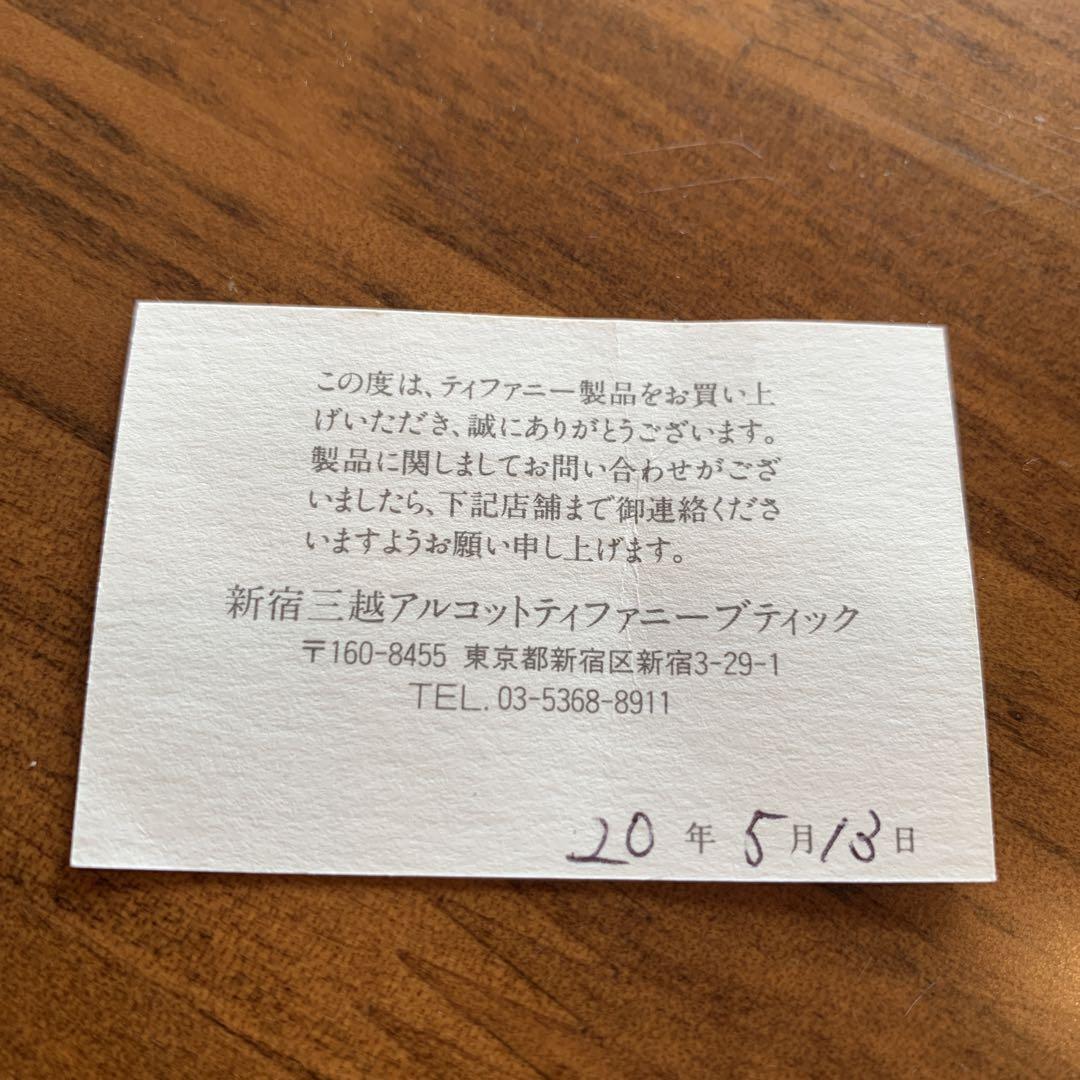 この度は、ティファニー製品をお買い上
げいただき、誠にありがとうございます。
製品に関しましてお問い合わせがござ
いましたら、下記店舗まで御連絡くださ
いますようお願い申し上げます。
新宿三越アルコットティファニーブティック
〒160-8455 東京都新宿区新宿3-29-1
TEL. 03-5368-8911
20 年 5 月 13 日